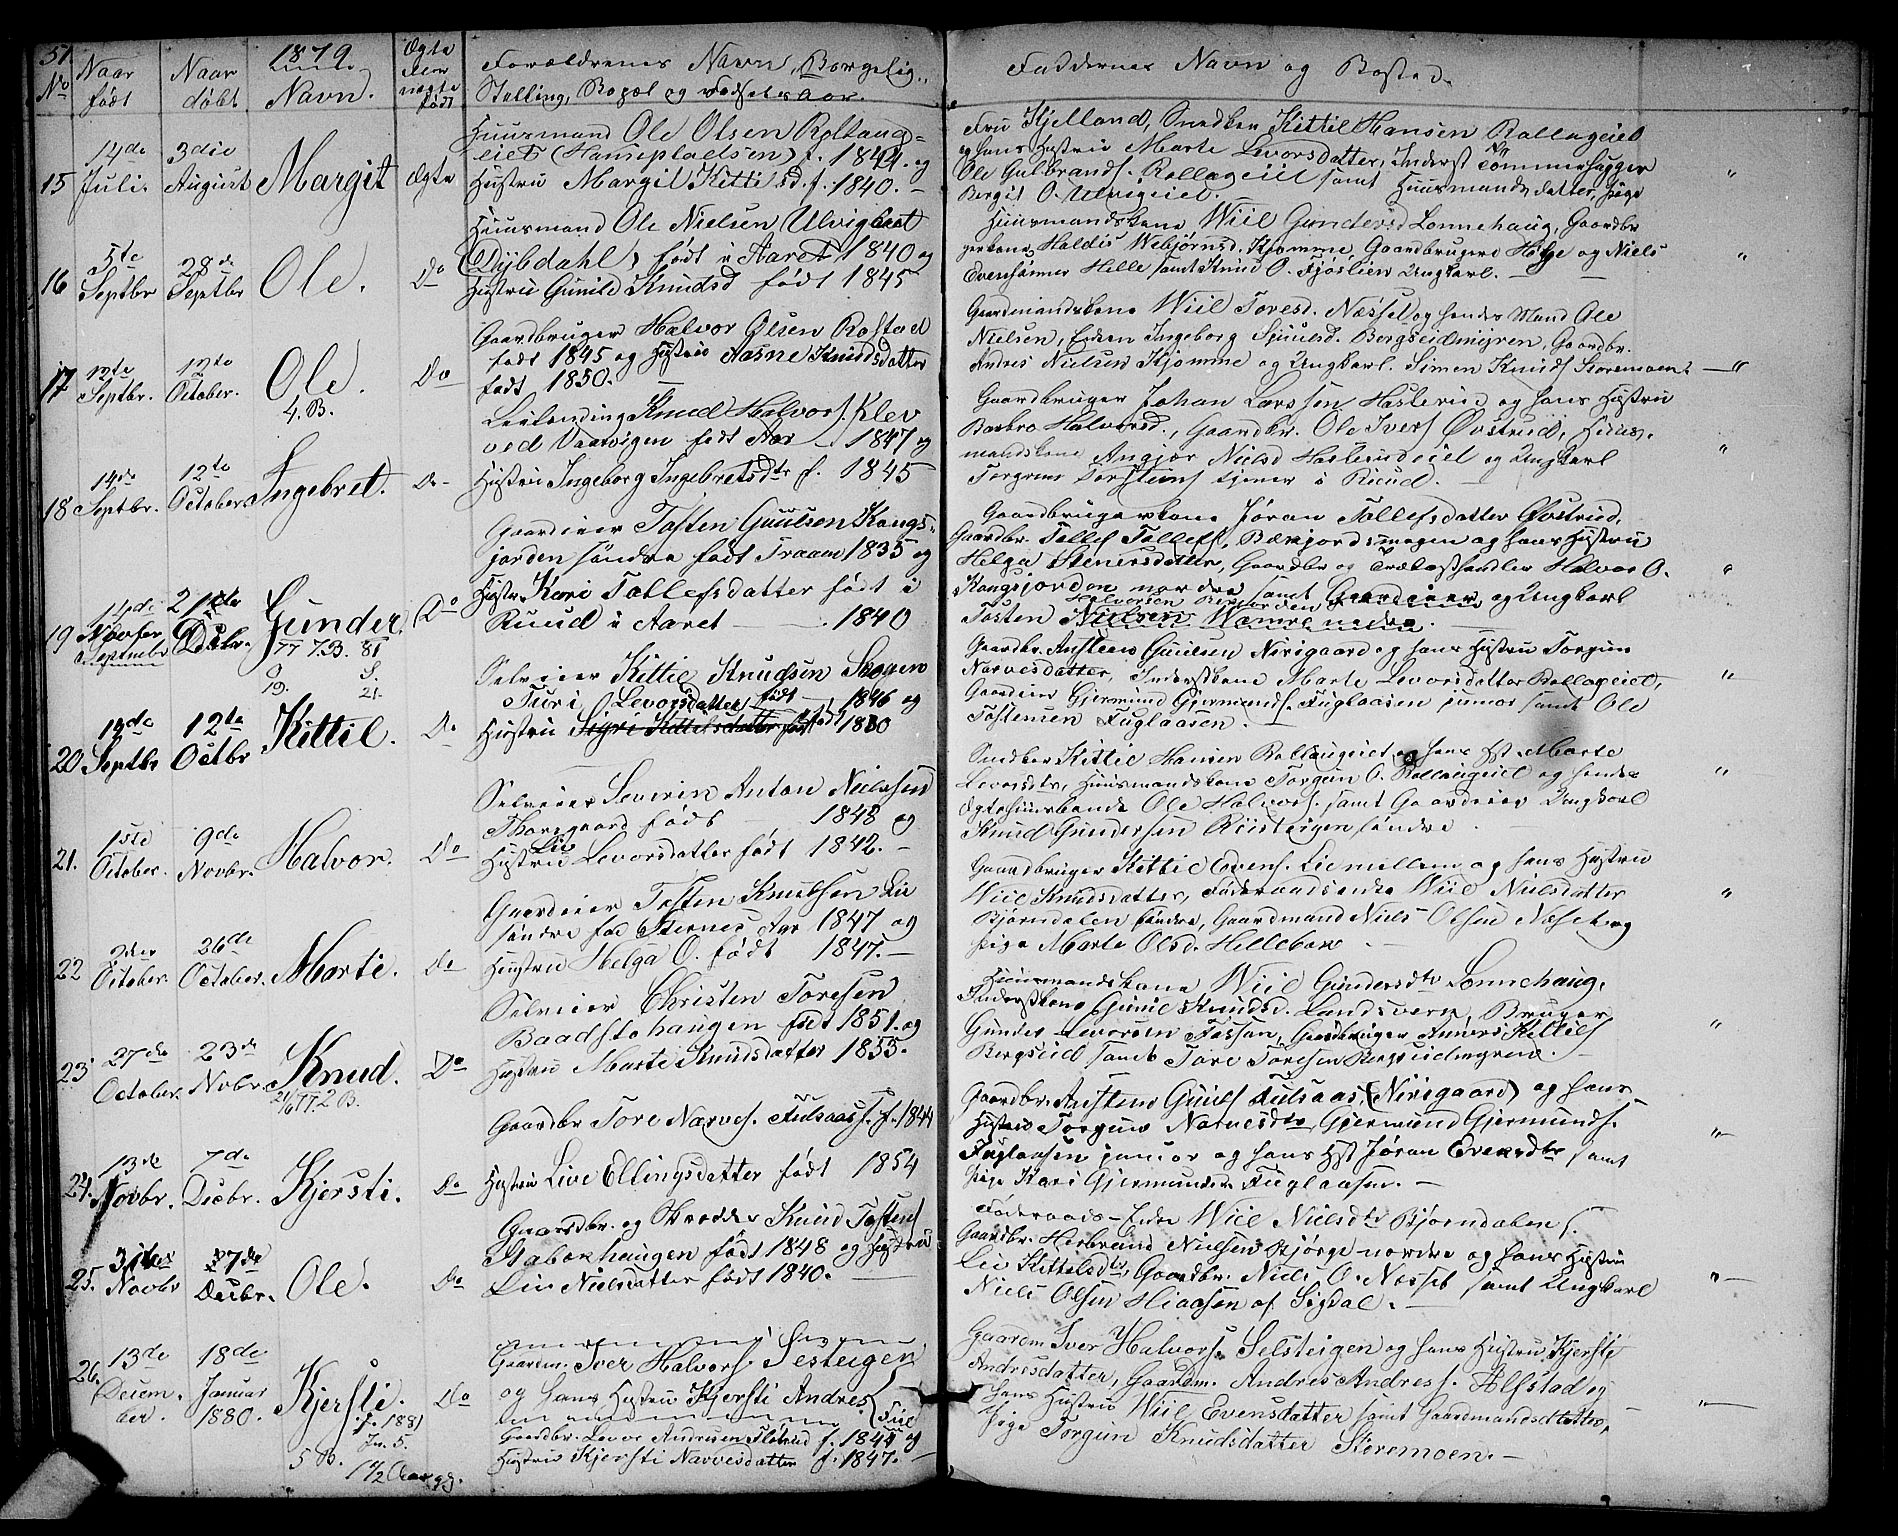 51
1879
No
Naar født
Naar døbt
Navn.
Ægte eller uægte født
Forældrenes Navn, Borgelig
Stilling, Bopæl og Fødselsaar.
Faddernes Navn og Bosted.
15
14de Juli.
3die August
Margit
Ægte
Huusmand Ole Olsen Rollaug-
eiet (Hansepladsen) f. 1844. og
Hustru Margit Kittilsd. f. 1840. -
Fru Kjelland, Snedker Kittil Hansen Rollageiet
og hans Hustru Marte Levorsdatter, Inderst og Tømmerhugger
Ole Gulbrands. Rollageiet samt Huusmandsdatter, pige
Bergit O. Ulvigeiet.
16
5te Septbr
28de Septbr
Ole.
Do
Huusmand Ole Nielsen Ulvigeiet
(Dybdahl) født i Aaret 1840 og
Hustru Gunild Knudsd født 1845
Huusmandskone Wiil Gundersd Lonnehaug, Gaardbr
gerkone Haldis Webjørnsd. Kjomme, Gaardbrugere Helge og Niels
Evensønner Helle samt Knud O. Fjøslien Ungkarl.
17
12te Septbr.
12te October.
Ole.
4. B.
Do
Gaardbruger Halvor Olsen Rostad
født 1845 og Hustru Aasne Knudsdatter
født 1850.
Gaardmandskone Wiil Toresd. Næsset og hendes Mand Ole
Nielsen, Enken Ingeborg Sjuulsd. Bergseidmyren, Gaardbr.
Anders Nielsen Kjomme og Ungkarl. Simen Knuds Storemoen.
18
14de Septbr.
12te October
Ingebret.
Do
Leilending Knud Halvors. Klev
ved Vaarvigen født Aar 1847 og
Hustru Ingeborg Ingebretsdtr f. 1845
Gaardbruger Johan Larssen Haslerud og hans Hustru
Barbro Halvorsd., Gaardbr. Ole Ivers Øvstrud, Huus-
mandskone Angjær Nielsd Haslerudeiet og Ungkarl
Torgrim Torstens tjener i Ruud.
19
14de
Septembr
21de Decbr.
Gunder.
77 7.B. 81
19. 21.
Do
Gaardeier Tosten Guulsen Kongs-
jorden søndre født Traaen 1835 og
Hustr. Kari Tollefsdatter født i
Ruud i Aaret 1840
Gaardbrugerkone Jøran Tollefsdatter Øvstrud,
Gaardbr. Tollef Tollefs, Bækjordsmogen og hans Hustru
Helga Stenersdatter, Gaardbr og Trælasthandler Halvor O.
Kongsjorden nordre samt Gaardeier og Ungkarl
Tosten Nielsen Wæmre nedre
20
12de Septbr
12te Octbr
Kittil.
Do
Selveier Kittil Knudsen Skogen
Turi Levorsdatter født 1846 og
Hustru Sigri Kittelsdatter født 1850
Gaardbr. Anstens Guulsen Nirigaard og hans Hustru Torgun
Narvesdatter, Inderstkone Marte Levorsdatter Rollageiet,
Gaardeier Gjermund Gjermunds. Fuglaasen junior samt Ole
Tostensen Fuglaasen.
21.
1ste October.
9de Novbr.
Halvor.
Do
Selveier Severin Anton Nielssen
Thorsgaard født 1848 og
Hustru Liv Levorsdatter født 1842. -
Snedker Kittil Hansen Rollaugeiet og hans Hst. Marte
Levorsdtr, Huusmandskone Torgun O. Rollaugeiet og hendes
Ægtehuusbonde Ole Halvors. samt Gaardeier Ungkarl
Knud Gundersen Rusteigen søndre
22
October.
26de October.
Marti.
Do
Gaardeier Tosten Knutsen Lie
søndre fød Stærnes Aar 1847 og
Hustru Helga O. født 1847. -
Gaardbruger Kittil Evens. Lie mellem og hans Hustru
Wiil Knudsdatter, Føderaadsenke Wiil Nielsdatter
Bjørndalen søndre, Gaardmand Niels Olsen Næset og
pige Marte Olsd. Hellebær
23
27de October.
23de Novbr.
Knud.
77. 2 B.
Do
Selveier Christen Toresen
Baadstøhaugen født 1851. og
Hustru Marte Knudsdatter 1855.
Huusmandskone Wiil Gundersdtr Lonnehaug,
Inderstkone Gunil Knudsd. Landsverk, Bruger
Gunder Levorsen Fossan, Gaardbruger Anners Kittils
Bergseid samt Tore Toresen Bergseidmyren.
24.
13de Novbr.
7de Decbr.
Kjersti.
Do
Gaardbr Tore Narves. Fulsaas f. 1844
Hustru Live Ellingsdatter født 1854
Gaardbr. Anstens Guuls Fulsaas, (Nirigaard) og hans
Hustru Torgun Narvesdtr, Gjermund Gjermunds.
Fuglaasen junior og hans Hst Jøran Evensdtr samt
pige Kari Gjermundsd. Fuglaasen. -
25.
Novbr
27de Decbr.
Ole.
Do
Gaardbr. og Skrædder Knud Tostens
Stabækhaugen født 1848 og Hustru
Liv Nielsdatter født 1840.
Føderaads-Enke Wiil Nielsdtr Bjørndalen s.
Gaardbr. Herbrand Nielsen Bjørge nordre og hans Hustru
Liv Kittelsdtr, Gaardbr. Niels O. Næsset samt Ungkarl
Niels Olsen Hiaasen af Sigdal. -
26.
13de Decem-
ber.
18de Januar 1880.
Kjersti.
f. 1881
5 B.
1 1/2 Aar
Do
Gaardm. Iver Halvors. Selsteigen
og hans Hustru Kjersti Andres
Gaardbr. Levor Andersen f. 1844 og
Hustru Kjersti Narvesdatter f. 1847. -
Gaardm Iver Halvors. Selsteigen og hans Hustru Kjersti
Andresdatter, Gaardm. Andres Andres s. Alfstad og
hans Hustru Wiil Evensdatter samt Gaardmandsdatter,
pige Torgun Knudsdatter Storemoen. -